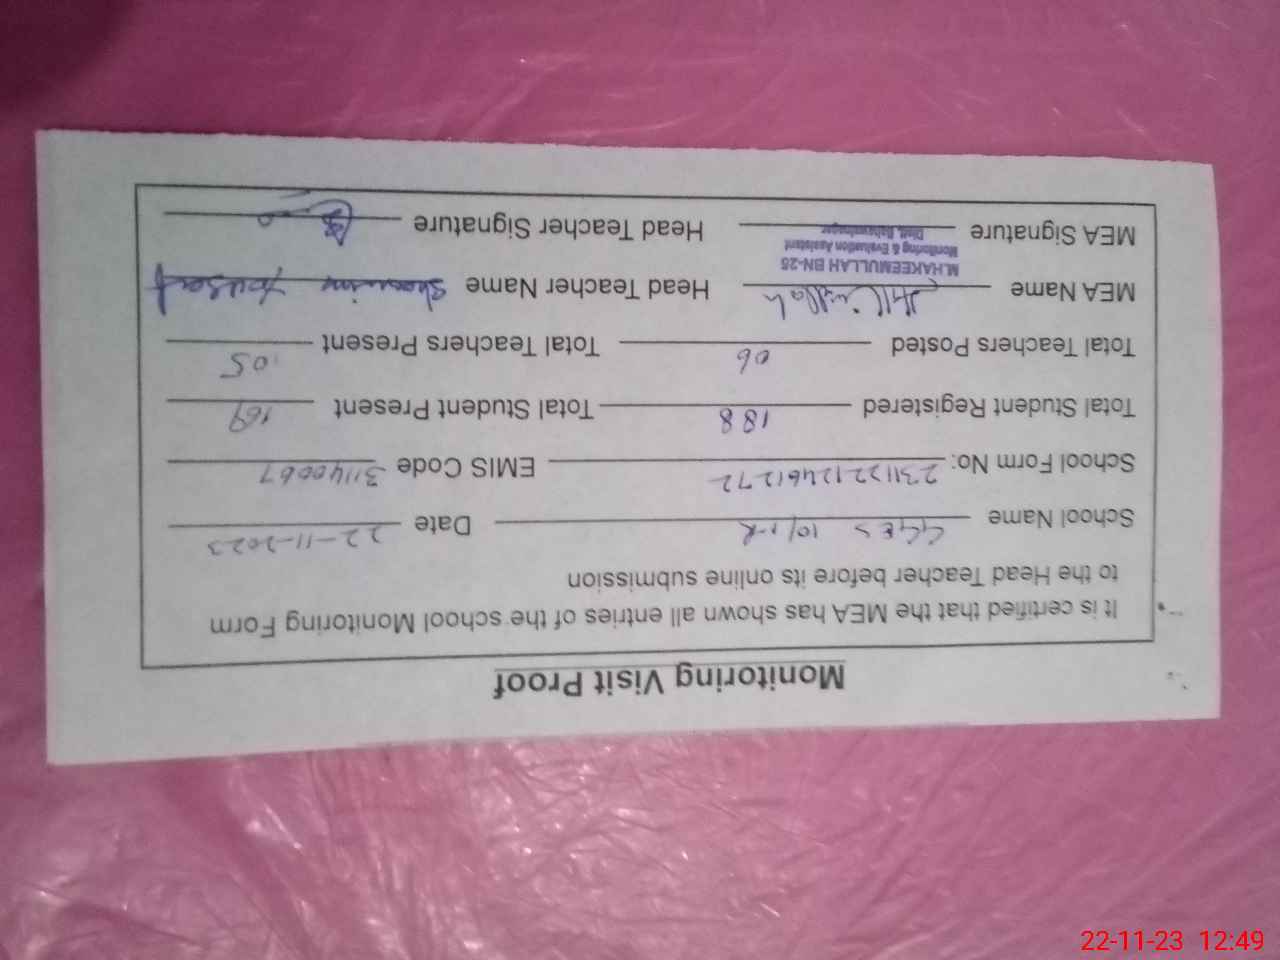 Monitoring Visit Proof
It is certified that the MEA has shown all entries of the school Monitoring Form
to the Head Teacher before its online submission
School Name GGES 10/1-R Date 22-11-2023
School Form No: 23112212461272 EMIS Code 31140067
Total Student Registered 188 Total Student Present 169
Total Teachers Posted 06 Total Teachers Present 05
MEA Name Head Teacher Name
M.HAKEEMULLAH BN-25
Monitoring & Evaluation Assistant
Distt. Bahawalnagar
MEA Signature Head Teacher Signature
22-11-23 12:49